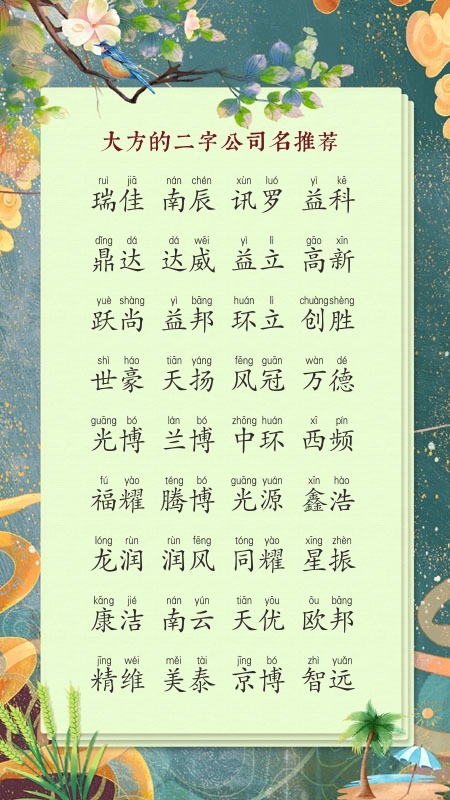 大方的二字公司名推荐
ruì jiā nán chén xùn luó yì kē
瑞佳 南辰 讯罗 益科
dǐng dá dá wēi yì lì gāo xīn
鼎达 达威 益立 高新
yuè shàng yì bāng huán lì chuàngshèng
跃尚 益邦 环立 创胜
shì háo tiān yáng fēng guān wàn dé
世豪 天扬 风冠 万德
guāng bó lán bó zhōng huán xī pín
光博 兰博 中环 西频
fú yào téng bó guāng yuán xīn hào
福耀 腾博 光源 鑫浩
lóng rùn rùn fēng tóng yào xīng zhèn
龙润 润风 同耀 星振
kāng jié nán yún tiān yōu ōu bāng
康洁 南云 天优 欧邦
jīng wéi měi tài jīng bó zhì yuǎn
精维 美泰 京博 智远